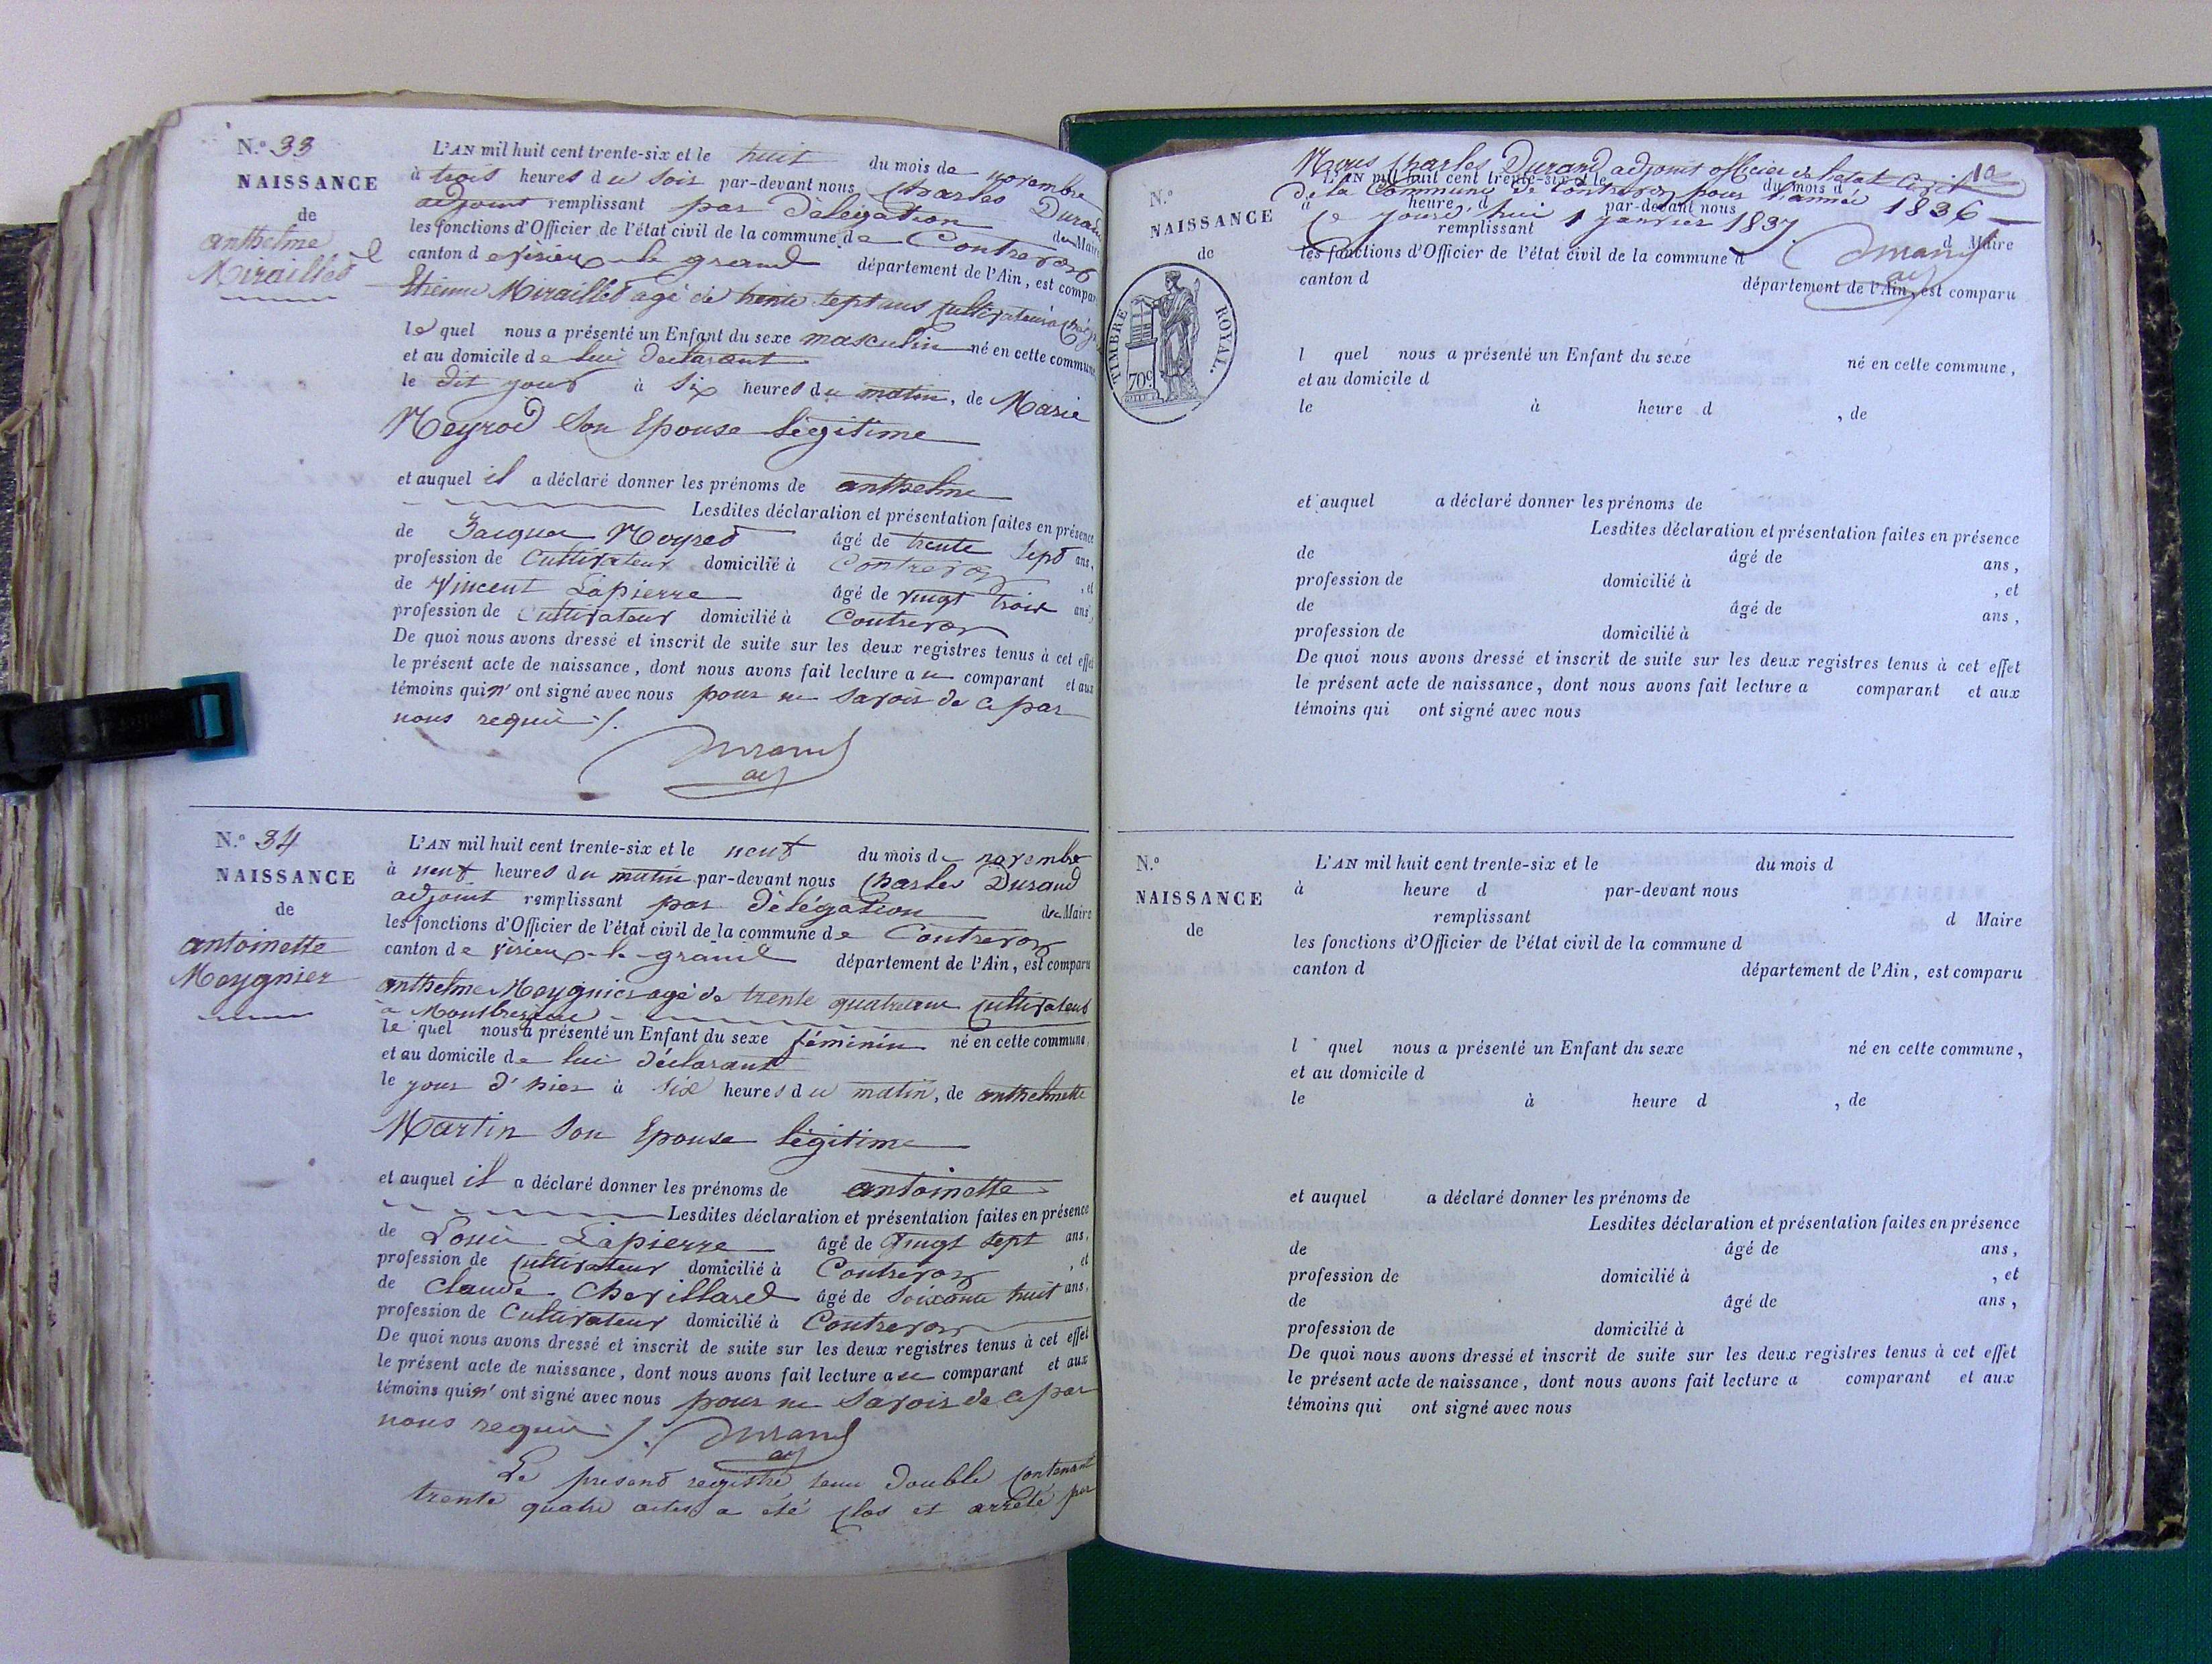 N.º 33
NAISSANCE
de
anthelme
Miraillet
L'AN mil huit cent trente-six et le huit du mois de novembre
à trois heures du soir par-devant nous Charles Durand
adjoint remplissant par délégation du Maire
les fonctions d'Officier de l'état civil de la commune de Contrevoz
canton de virieux le grand département de l'Ain, est comparu
Etienne Miraillet agé de trente sept ans cultivateur à
le quel nous a présenté un Enfant du sexe masculin né en cette commune
et au domicile de lui déclarant
le dit jour à six heures du matin, de Marie
Meyrod son Epouse légitime
et auquel il a déclaré donner les prénoms de anthelme
Lesdites déclaration et présentation faites en présence
de Jacque Meyrod âgé de trente sept ans,
profession de Cultivateur domicilié à Contrevoz , et
de Vincent Lapierre âgé de vingt trois ans,
profession de Cultivateur domicilié à Contrevoz
De quoi nous avons dressé et inscrit de suite sur les deux registres tenus à cet effet
le présent acte de naissance, dont nous avons fait lecture au comparant et aux
témoins qui n'ont signé avec nous pour ne savoir de ce par
nous requis ./.
Durand
adj
N.º 34
NAISSANCE
de
antoinette
Meygnier
L'AN mil huit cent trente-six et le neuf du mois de novembre
à neuf heures du matin par-devant nous Charles Durand
adjoint remplissant par délégation du Maire
les fonctions d'Officier de l'état civil de la commune de Contrevoz
canton de virieux-le-grand département de l'Ain, est comparu
anthelme Meygnier agé de trente quatre ans cultivateur
à Montbreziau
le quel nous a présenté un Enfant du sexe féminin né en cette commune,
et au domicile de lui déclarant
le jour d'hier à six heures du matin, de anthelmette
Martin son Epouse légitime
et auquel il a déclaré donner les prénoms de antoinette
Lesdites déclaration et présentation faites en présence
de Louis Lapierre âgé de vingt sept ans,
profession de cultivateur domicilié à Contrevoz , et
de Claude Chevillard âgé de soixante huit ans,
profession de Cultivateur domicilié à Contrevoz
De quoi nous avons dressé et inscrit de suite sur les deux registres tenus à cet effet
le présent acte de naissance, dont nous avons fait lecture au comparant et aux
témoins qui n'ont signé avec nous pour ne savoir de ce par
nous requis ./. Durand
adj
Le present registre tenu double contenant
trente quatre actes a été clos et arrêté par
Nous Charles Durand adjoint officier de l'etat civil
de la Commune de Contrevoz pour l'année 1836
ce jourd'hui 1 janvier 1837
Durand
adj
N.º
NAISSANCE
de
TIMBRE ROYAL.
70c
L'AN mil huit cent trente-six et le du mois d
à heure d par-devant nous
remplissant d Maire
les fonctions d'Officier de l'état civil de la commune d
canton d département de l'Ain, est comparu
l quel nous a présenté un Enfant du sexe né en cette commune,
et au domicile d
le à heure d , de
et auquel a déclaré donner les prénoms de
Lesdites déclaration et présentation faites en présence
de âgé de ans,
profession de domicilié à , et
de âgé de ans,
profession de domicilié à
De quoi nous avons dressé et inscrit de suite sur les deux registres tenus à cet effet
le présent acte de naissance, dont nous avons fait lecture a comparant et aux
témoins qui ont signé avec nous
N.º
NAISSANCE
de
L'AN mil huit cent trente-six et le du mois d
à heure d par-devant nous
remplissant d Maire
les fonctions d'Officier de l'état civil de la commune d
canton d département de l'Ain, est comparu
l quel nous a présenté un Enfant du sexe né en cette commune,
et au domicile d
le à heure d , de
et auquel a déclaré donner les prénoms de
Lesdites déclaration et présentation faites en présence
de âgé de ans,
profession de domicilié à , et
de âgé de ans,
profession de domicilié à
De quoi nous avons dressé et inscrit de suite sur les deux registres tenus à cet effet
le présent acte de naissance, dont nous avons fait lecture a comparant et aux
témoins qui ont signé avec nous